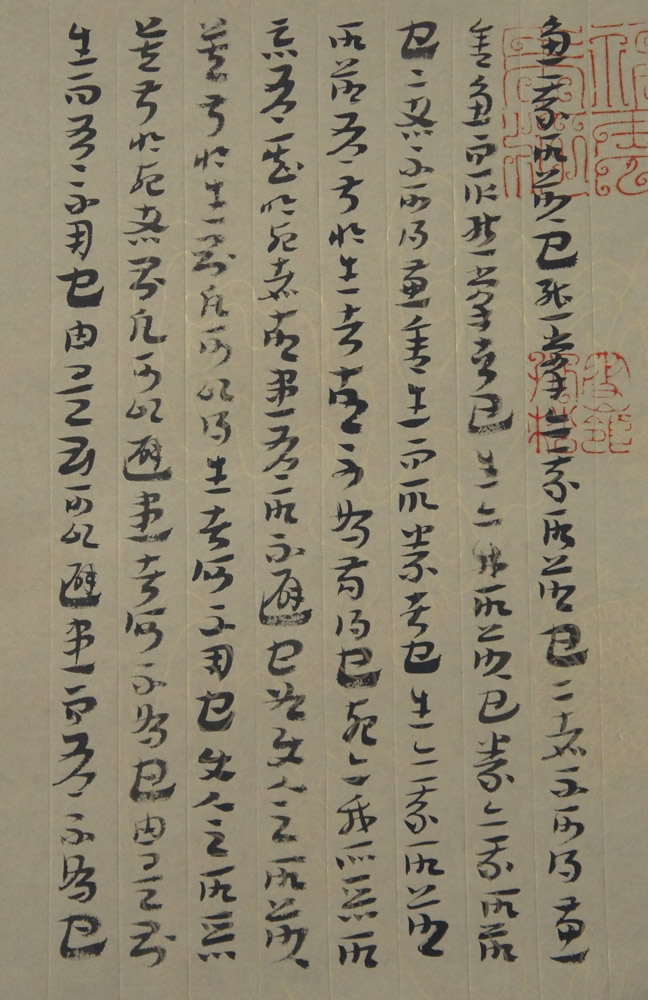 魚我所欲也熊掌亦我所欲也二者不可得兼
舍魚而取熊掌者也生亦我所欲也義亦我所欲
也二者不可得兼舍生而取義者也生亦我所欲
所欲有甚於生者故不為苟得也死亦我所惡所
惡有甚於死者故患有所不避也如使人之所欲
莫甚於生則凡可以得生者何不用也使人之所惡
莫甚於死者則凡可以避患者何不為也由是則
生而有不用也由是則可以避患而有不為也